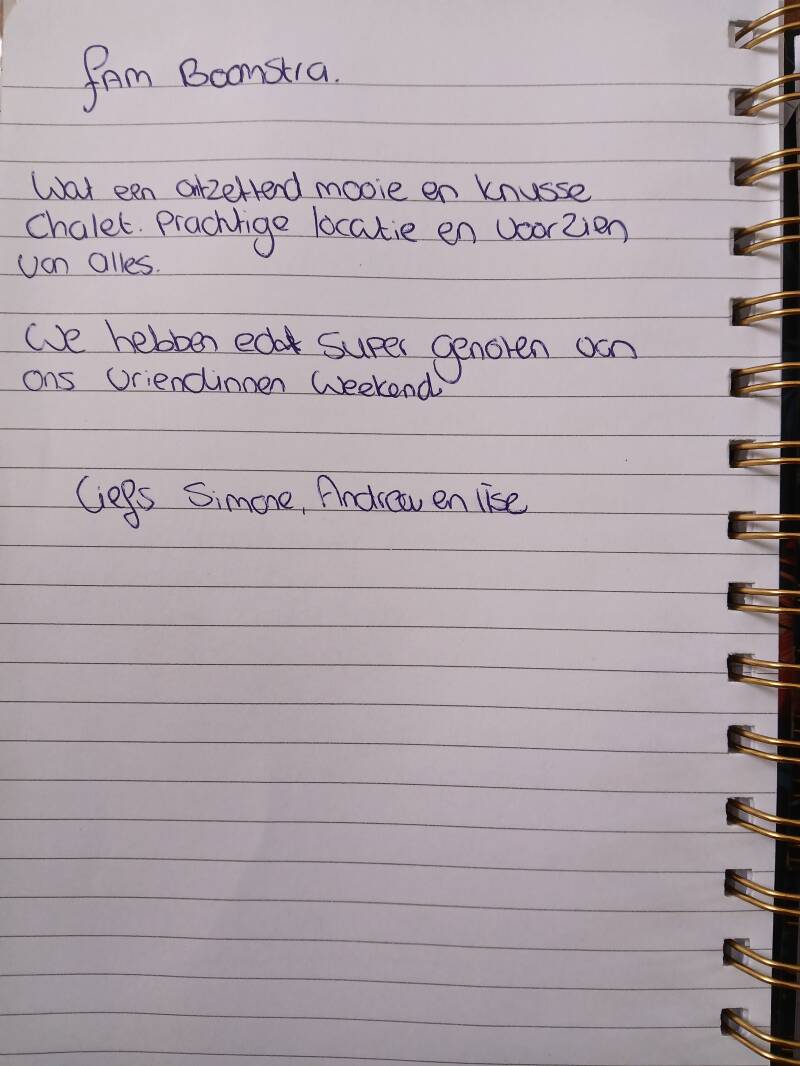 fam Boomstra.
Wat een ontzettend mooie en knusse
Chalet. Prachtige locatie en voorzien
van alles.
We hebben echt super genoten van
ons vriendinnen weekend
Liefs Simone, Andrea en lise